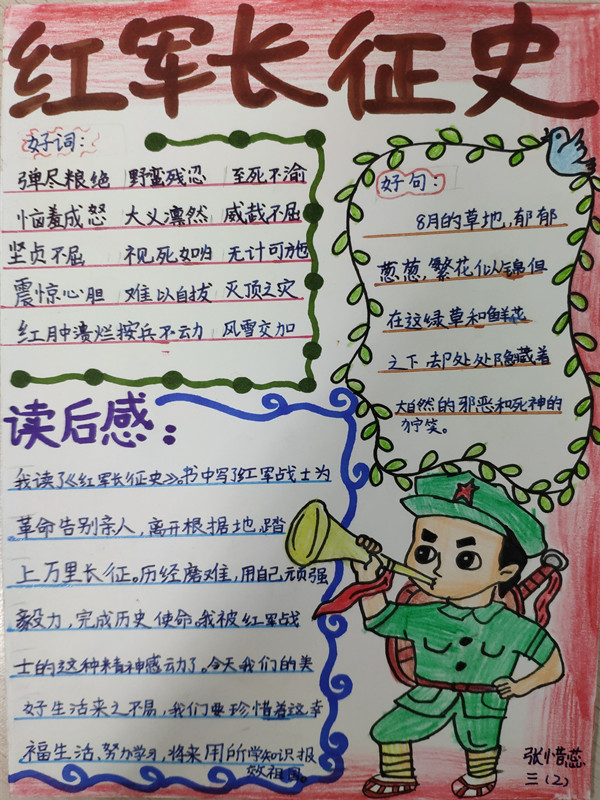 红军长征史
好词:
弹尽粮绝 野蛮残忍 至死不渝
恼羞成怒 大义凛然 威武不屈
坚贞不屈 视死如归 无计可施
震惊心胆 难以自拔 灭顶之灾
红肿溃烂 按兵不动 风雪交加
好句:
8月的草地,郁郁
葱葱,繁花似锦但
在这绿草和鲜花
之下 却处处隐藏着
大自然的邪恶和死神的
狞笑。
读后感:
我读了《红军长征史》。书中写了红军战士为
革命告别亲人,离开根据地,踏
上万里长征。历经磨难,用自己顽强
毅力,完成历史使命。我被红军战
士的这种精神感动了。今天我们的美
好生活来之不易,我们要珍惜着这幸
福生活、努力学习,将来用所学知识报
效祖国。
张惜蕊
三(2)